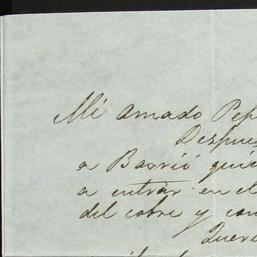 Mi amado Pep
Despues
a Barrió quie
a entrar en el
del cobre y con
Quer